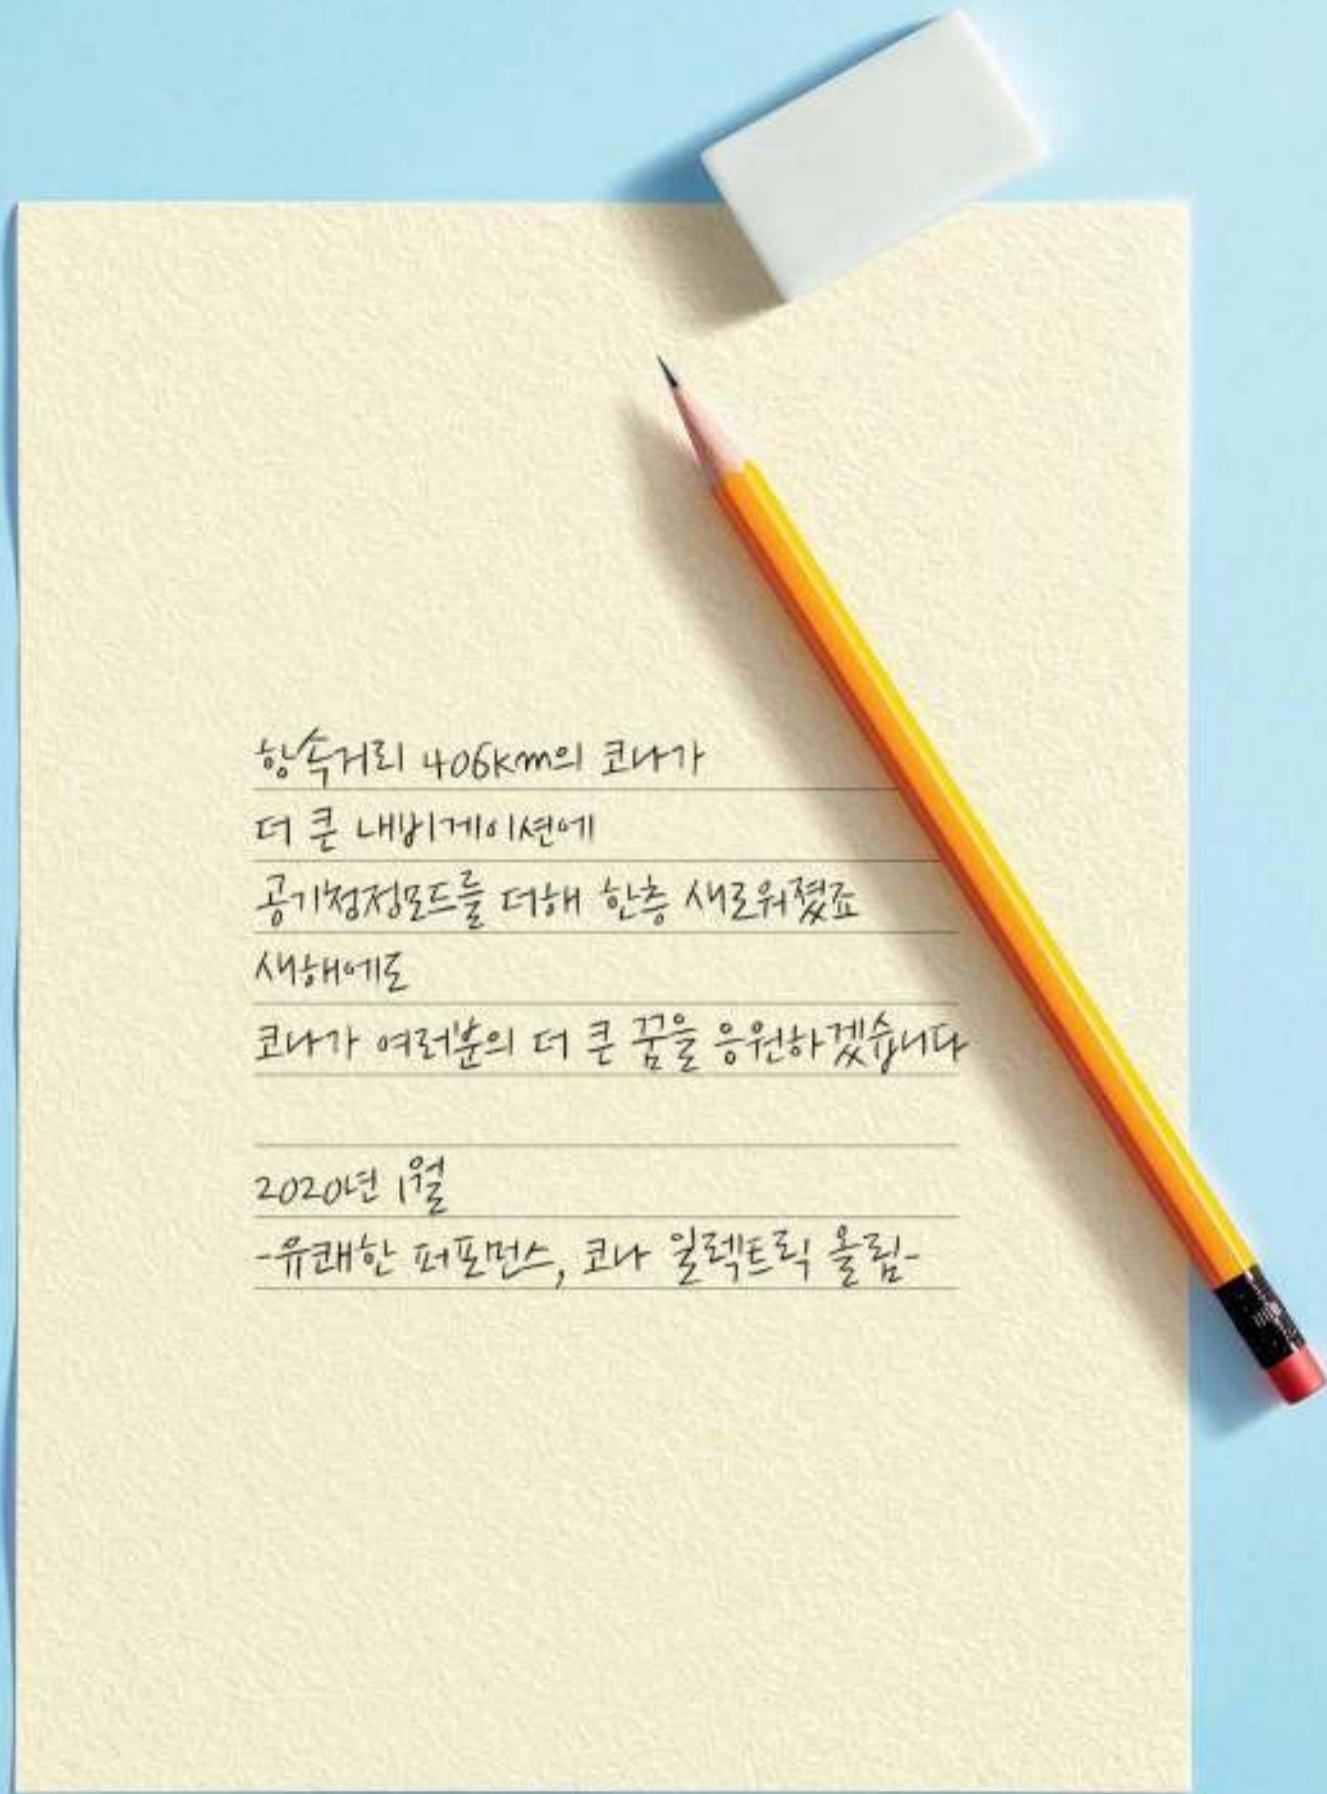 항속거리 406km의 코나가
더 큰 내비게이션에
공기청정모드를 더해 한층 새로워졌죠
새해에도
코나가 여러분의 더 큰 꿈을 응원하겠습니다
2020년 1월
-유쾌한 퍼포먼스, 코나 일렉트릭 올림-